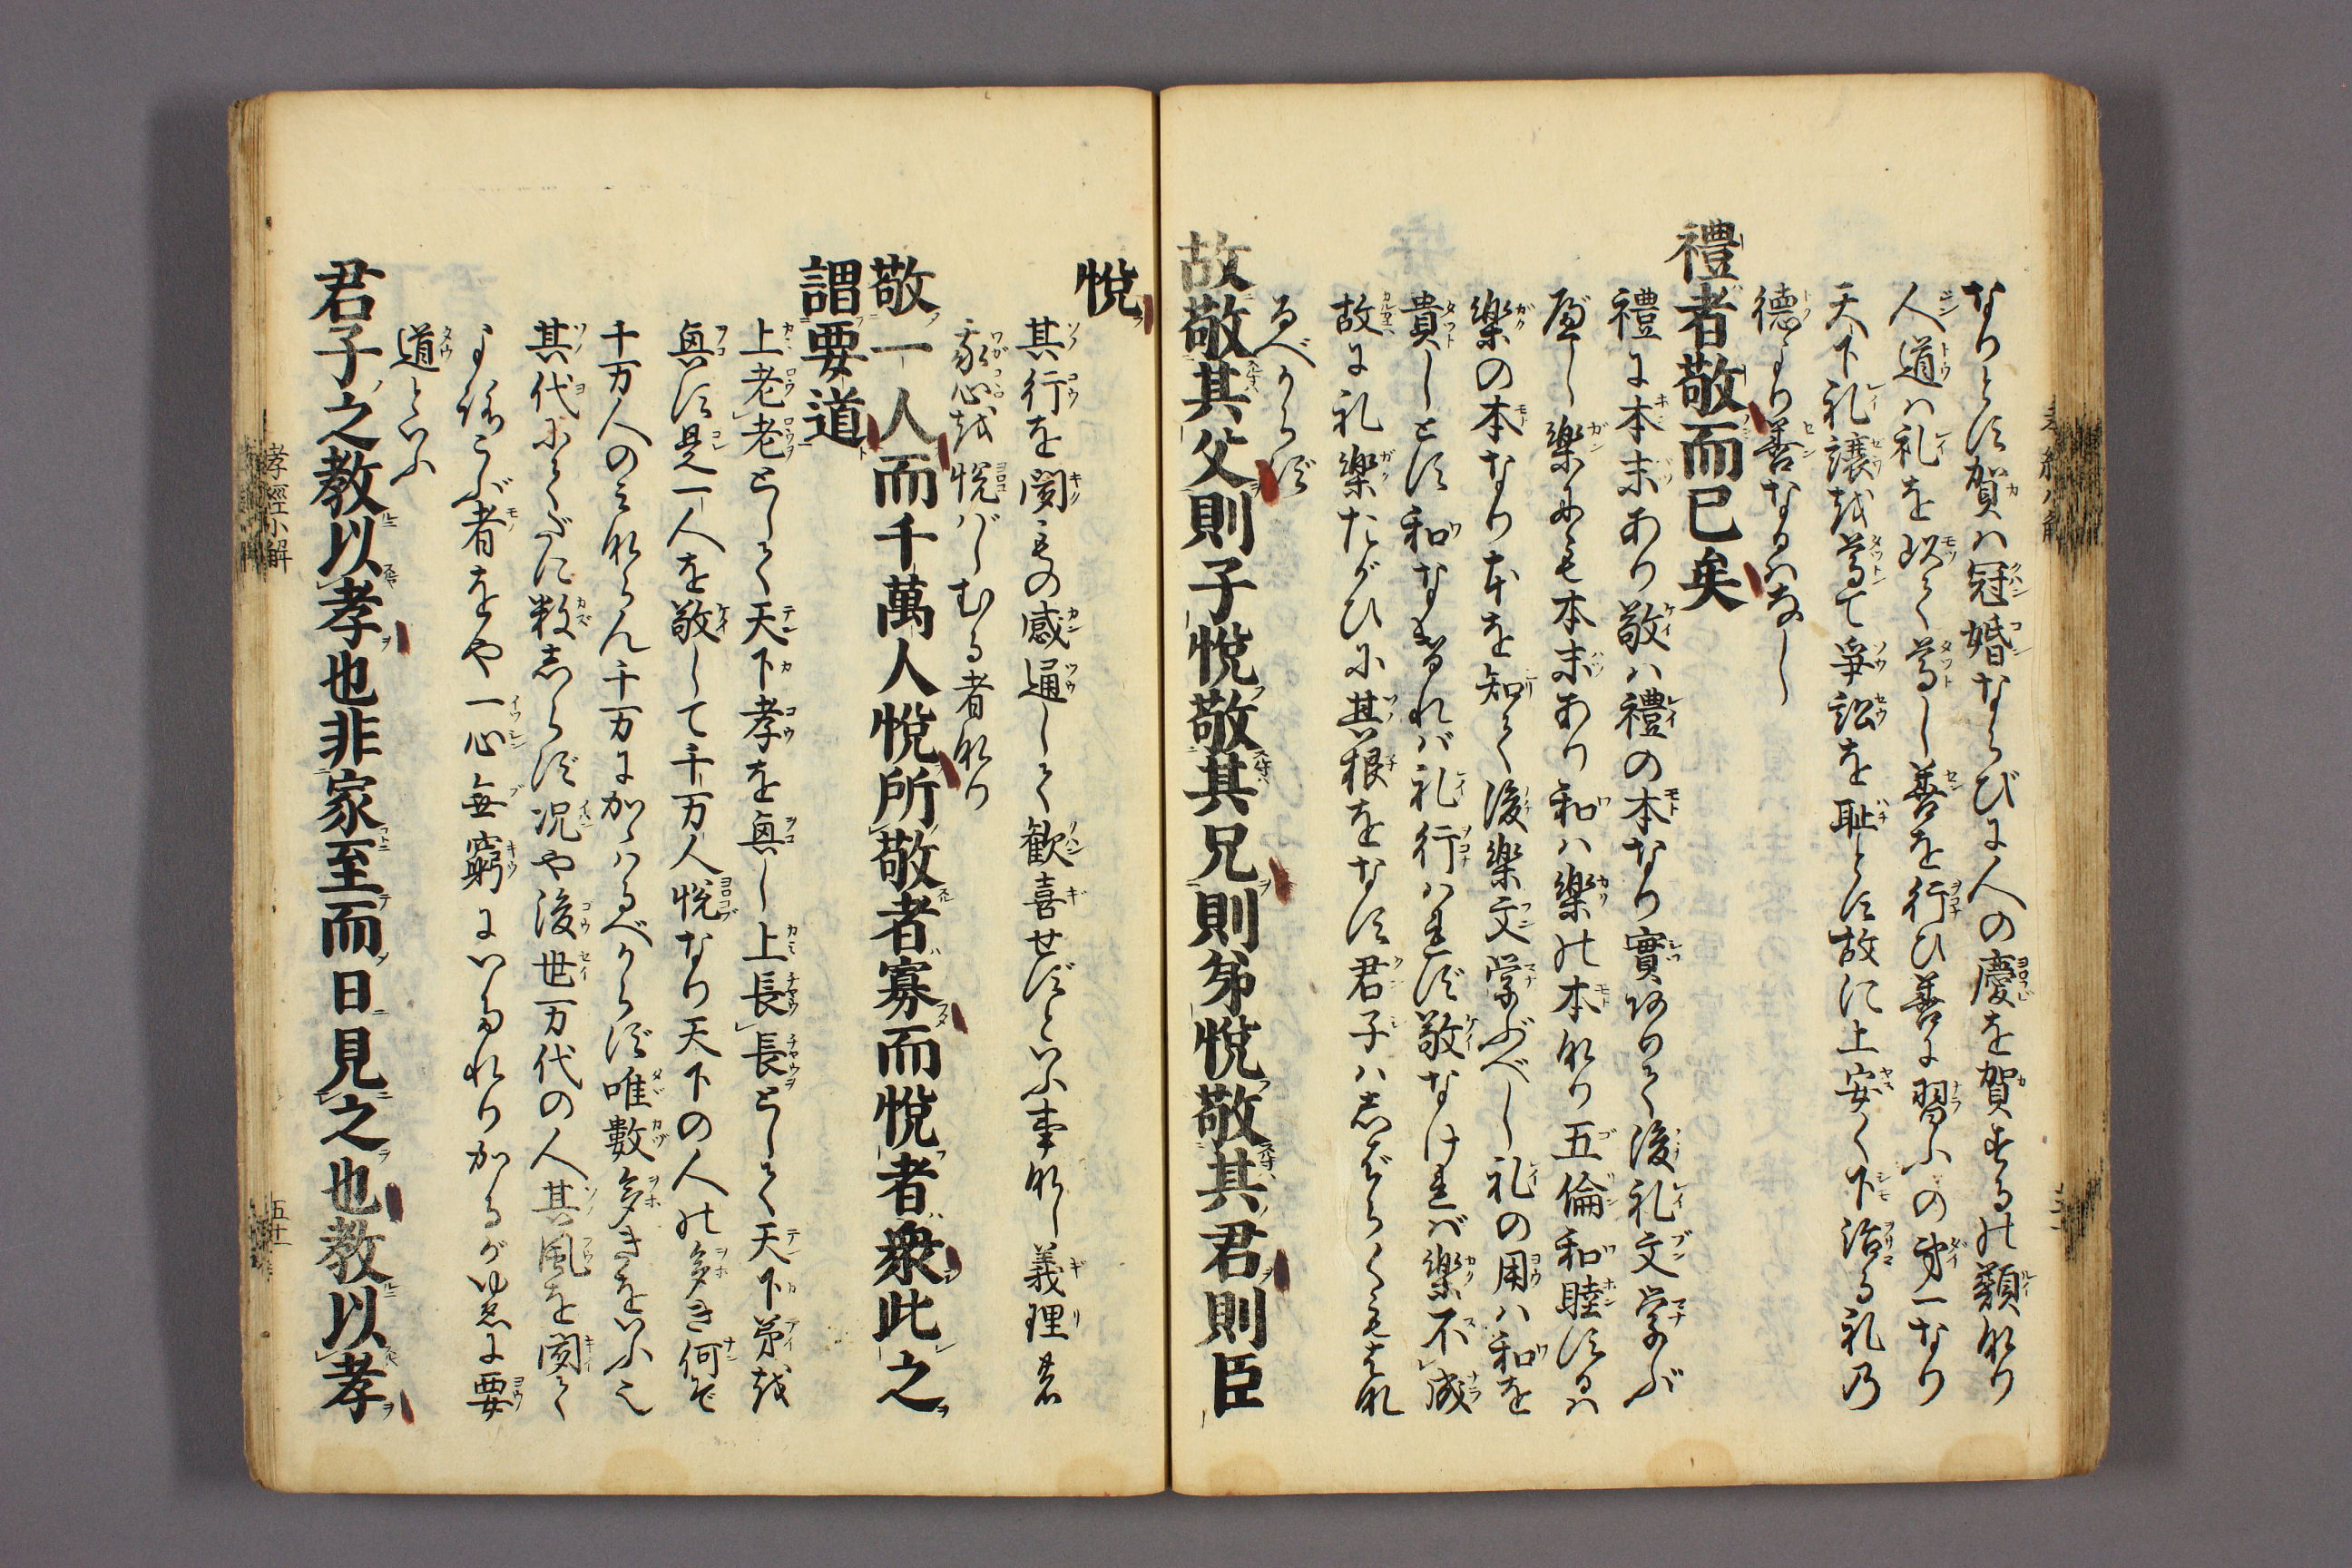 なりとす賀ハ冠婚ならびに人の慶を賀するの類なり
人道ハ礼を以て尊し善を行ひ善に習ふの第一なり
天下礼譲を尊て爭訟を耻とす故に上安く下治る礼乃
徳より善なるハなし
禮者敬而已矣
禮に本末あり敬ハ禮の本なり實ありて後礼文学ぶ
べし樂にも本末あり和ハ樂の本なり五倫和睦するハ
樂の本なり本を知て後樂文学ぶべし礼の用ハ和を
貴しとす和なければ礼行ハれず敬なければ樂不成
故に礼樂たがひに其根をなす君子ハしばらくもはな
るべからず
故敬其父則子悦敬其兄則弟悦敬其君則臣
悦
其行を聞もの感通して歓喜せずといふ事なし義理者
我心を悦ばしむる者なり
敬一人而千萬人悦所敬者寡而悦者衆此之
謂要道
上老老として天下孝を興し上長長として天下弟を
興す是一人を敬して千万人悦なり天下の人の多き何ぞ
千万人のみならん千万に加ハるべからず唯數多きをいふ也
其代にてだに数しらず况や後世万代の人其風を聞て
よろこぶ者をや一心無窮にいたれりかるがゆゑに要
道といふ
君子之教以孝也非家至而日見之也教以孝
孝經小解
五十一